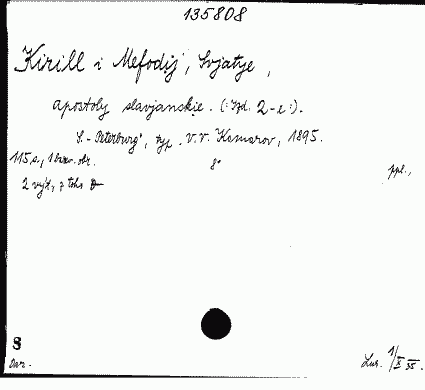 135808
Kirill i Mefodij, Svjatye,
apostoly slavjanskie. (:Izd. 2-e:).
S.-Peterburg, typ. V.V. Komarov, 1895.
115 s., 1 barev. obr. 8° ppl.,
2 výt., z toho
8
Dar. Lus. 1/X 55.